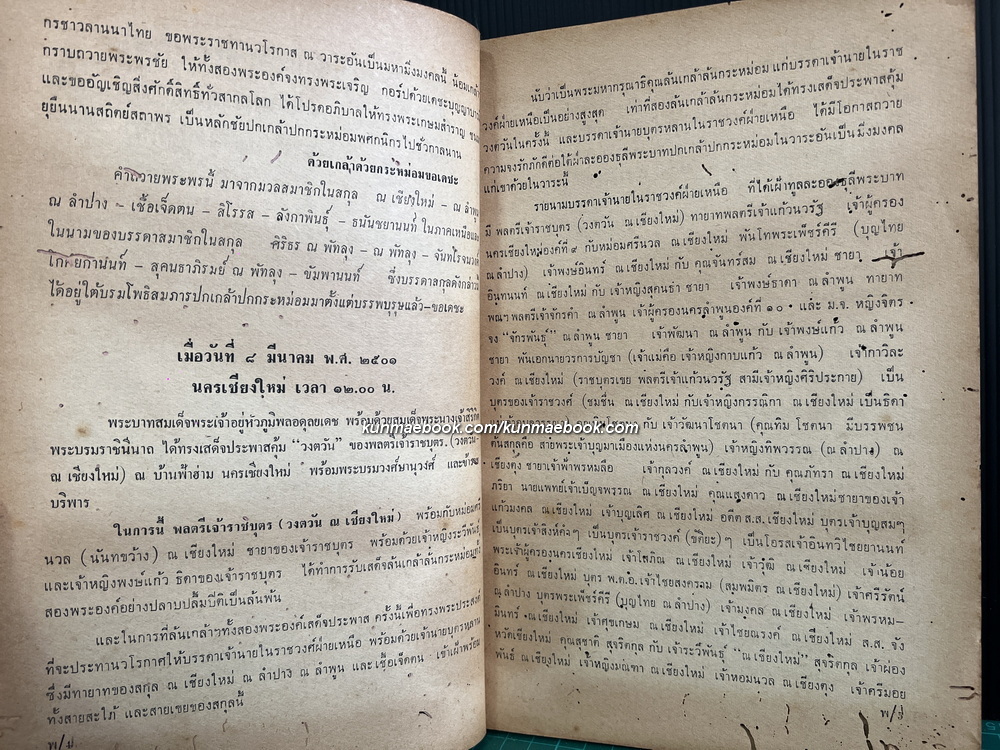 กรชาวลานนาไทย ขอพระราชทานวโรกาส ณ วาระอันเป็นมหามิ่งมงคลนี้ น้อมเกล้า
กราบถวายพระพรชัย ให้ทั้งสองพระองค์จงทรงพระเจริญ กอร์ปด้วยเดชะบุญญาบารมี
และขออัญเชิญสิ่งศักดิ์สิทธิ์ทั่วสากลโลก ได้โปรดอภิบาลให้ทรงพระเกษมสำราญ
ยุยืนนานสถิตย์สถาพร เป็นหลักชัยปกเกล้าปกกระหม่อมพศกนิกรไปชั่วกาลนาน
ด้วยเกล้าด้วยกระหม่อมขอเดชะ
คำถวายพระพรนี้ มาจากมวลสมาชิกในสกุล ณ เชียงใหม่ – ณ ลำพูน
ณ ลำปาง – เชื้อเจ็ดตน – สิโรรส – ลังกาพินธุ์ – ธนันชยานนท์ ในภาคเหนือและ
ในนามของบรรดาสมาชิกในสกุล ศิริธร ณ พัทลุง – ณ พัทลุง – จันทโรจนวงศ์
โกษยกานนท์ – สุคนธาภิรมย์ ณ พัทลุง – ขัมพานนท์ ซึ่งบรรดาสกุลดังกล่าวนี้
ได้อยู่ใต้บรมโพธิสมภารปกเกล้าปกกระหม่อมมาตั้งแต่บรรพบุรุษแล้ว–ขอเดชะ
เมื่อวันที่ ๘ มีนาคม พ.ศ. ๒๕๐๑
นครเชียงใหม่ เวลา ๑๒.๐๐ น.
พระบาทสมเด็จพระเจ้าอยู่หัวภูมิพลอดุลยเดช พร้อมด้วยสมเด็จพระนางเจ้าสิริกิติ์
พระบรมราชินีนาถ ได้ทรงเสด็จประพาสคุ้ม "วงตวัน" ของพลตรีเจ้าราชบุตร (วงตวัน
ณ เชียงใหม่) ณ บ้านฟ้าฮ่าม นครเชียงใหม่ พร้อมพระบรมวงศ์ษานุวงศ์ และข้าราช
บริพาร
ในการนี้ พลตรีเจ้าราชบุตร (วงตวัน ณ เชียงใหม่) พร้อมกับหม่อมศรี
นวล (นันทขว้าง) ณ เชียงใหม่ ชายาของเจ้าราชบุตร พร้อมด้วยเจ้าหญิงระวีพันธุ์
และเจ้าหญิงพงษ์แก้ว ธิดาของเจ้าราชบุตร ได้ทำการรับเสด็จล้นเกล้าล้นกระหม่อมทั้ง
สองพระองค์อย่างปลาบปลื้มปิติเป็นล้นพ้น
และในการที่ล้นเกล้าฯทั้งสองพระองค์เสด็จประพาส ครั้งนี้เพื่อทรงพระประสงค์
ที่จะประทานวโรกาศให้บรรดาเจ้านายในราชวงศ์ฝ่ายเหนือ พร้อมด้วยเจ้านายบุตรหลาน
ซึ่งมีทายาทของสกุล ณ เชียงใหม่ ณ ลำปาง ณ ลำพูน และเชื้อเจ็ดตน เข้าเฝ้าพร้อม
ทั้งสายสะใภ้ และสายเขยของสกุลนี้
kunmaebook.com/kunmaebook.com
นับว่าเป็นพระมหากรุณาธิคุณล้นเกล้าล้นกระหม่อม แก่บรรดาเจ้านายในราช
วงศ์ฝ่ายเหนือเป็นอย่างสูงสุด เท่าที่สองล้นเกล้าล้นกระหม่อมได้ทรงเสด็จประพาสคุ้ม
วงตวันในครั้งนี้ และบรรดาเจ้านายบุตรหลานในราชวงศ์ฝ่ายเหนือ ได้มีโอกาสถวาย
ความจงรักภักดีต่อใต้ฝ่าละอองธุลีพระบาทปกเกล้าปกกระหม่อมในวาระอันเป็นมิ่งมงคล
แก่เขาด้วยในวาระนี้
รายนามบรรดาเจ้านายในราชวงค์ฝ่ายเหนือ ที่ได้เฝ้าทูลละอองธุลีพระบาท
มี พลตรีเจ้าราชบุตร (วงตวัน ณ เชียงใหม่) ทายาทพลตรีเจ้าแก้วนวรัฐ เจ้าผู้ครอง
นครเชียงใหม่องค์ที่ ๙ กับหม่อมศรีนวล ณ เชียงใหม่ พันโทพระเพ็ชร์คีรี (บุญไทย
ณ ลำปาง) เจ้าพงษ์อินทร์ ณ เชียงใหม่ กับ คุณจันทร์สม ณ เชียงใหม่ ชายา เจ้า
อินทนนท์ ณ เชียงใหม่ กับ เจ้าหญิงสุคนธา ชายา เจ้าพงษ์ธาดา ณ ลำพูน ทายาท
พณฯ พลตรีเจ้าจักรคำ ณ ลำพูน เจ้าผู้ครองนครลำพูนองค์ที่ ๑๐ และ ม.จ. หญิงจิตร
จง "จักรพันธุ์" ณ ลำพูน ชายา เจ้าพัฒนา ณ ลำพูน กับ เจ้าพงษ์แก้ว ณ ลำพูน
ชายา พันเอกนายวรการบัญชา (เจ้าแม่คือ เจ้าหญิงกาบแก้ว ณ ลำพูน) เจ้ากาวิละ
วงศ์ ณ เชียงใหม่ (ราชบุตรเขย พลตรีเจ้าแก้วนวรัฐ สามีเจ้าหญิงศิริประกาย) เป็น
บุตรของเจ้าราชวงศ์ (ชมชื่น ณ เชียงใหม่) กับเจ้าหญิงกรรณิกา ณ เชียงใหม่ เป็นธิดา
กับ เจ้าวัฒนาโชตนา (คุณทิม โชตนา มีบรรพชน
ต้นสกุลคือ สายพระเจ้าบุญมาเมืองแห่งนครลำพูน) เจ้าหญิงทิพวรรณ (ณ ลำปาง) ณ
เชียงตุง ชายาเจ้าฟ้าพรหมลือ เจ้ากุลวงค์ ณ เชียงใหม่ กับ คุณภัทรา ณ เชียงใหม่
ภริยา นายแพทย์เจ้าเบ็ญจพรรณ ณ เชียงใหม่ คุณแสงดาว ณ เชียงใหม่ ชายาของเจ้า
แก้วมงคล ณ เชียงใหม่ เจ้าบุญเลิศ ณ เชียงใหม่ อดีต ส.ส. เชียงใหม่ บุตรเจ้าบุญสมๆ
เป็นบุตรเจ้าสิงห์คำๆ เป็นบุตรเจ้าราชวงศ์ ๆ เป็นโอรสเจ้าอินทวิไชยยานนท์
พระเจ้าผู้ครองนครเชียงใหม่ เจ้าโสภิณ ณ เชียงใหม่ เจ้าวุฒิ ณ เชียงใหม่ เจ้าน้อย
อินทร์ ณ เชียงใหม่ บุตร พ.ต.อ. เจ้าไชยสงคราม (สมพมิตร ณ เชียงใหม่) เจ้าศรีรัตน์
ณ ลำปาง บุตรพระเพ็ชร์คีรี (บุญไทย ณ ลำปาง) เจ้ามงคล ณ เชียงใหม่ เจ้าพรหม–
มินทร์ ณ เชียงใหม่ เจ้าศุขเกษม ณ เชียงใหม่ เจ้าไชยณรงค์ ณ เชียงใหม่ ส.ส. จัง
หวัดเชียงใหม่ คุณสุชาติ สุจริตกุล กับ เจ้าระวีพันธุ์ "ณ เชียงใหม่" สุจริตกุล เจ้าผ่อง
พันธ์ ณ เชียงใหม่ เจ้าหญิงมณฑา ณ เชียงใหม่ เจ้าหอมนวล ณ เชียงตุง เจ้าศรีมอย